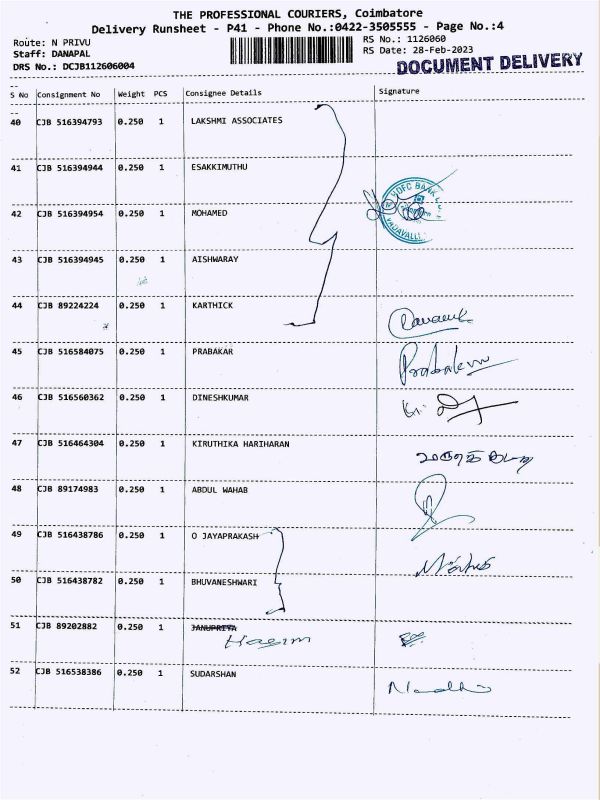 THE PROFESSIONAL COURIERS, Coimbatore
Delivery Runsheet - P41 - Phone No.:0422-3505555 - Page No.:4
Route: N PRIVU
RS No.: 1126060
Staff: DANAPAL
RS Date: 28-Feb-2023
DRS No.: DCJB112606004
DOCUMENT DELIVERY
S No Consignment No Weight PCS Consignee Details Signature
40 CJB 516394793 0.250 1 LAKSHMI ASSOCIATES
41 CJB 516394944 0.250 1 ESAKKIMUTHU
HDFC BANK
42 CJB 516394954 0.250 1 MOHAMED
43 CJB 516394945 0.250 1 AISHWARAY
44 CJB 89224224 0.250 1 KARTHICK
45 CJB 516584075 0.250 1 PRABAKAR
Prabakar
46 CJB 516560362 0.250 1 DINESHKUMAR
47 CJB 516464304 0.250 1 KIRUTHIKA HARIHARAN
48 CJB 89174983 0.250 1 ABDUL WAHAB
49 CJB 516438786 0.250 1 O JAYAPRAKASH
50 CJB 516438782 0.250 1 BHUVANESHWARI
51 CJB 89202882 0.250 1 JANUPRIYA
Hasim
52 CJB 516538386 0.250 1 SUDARSHAN